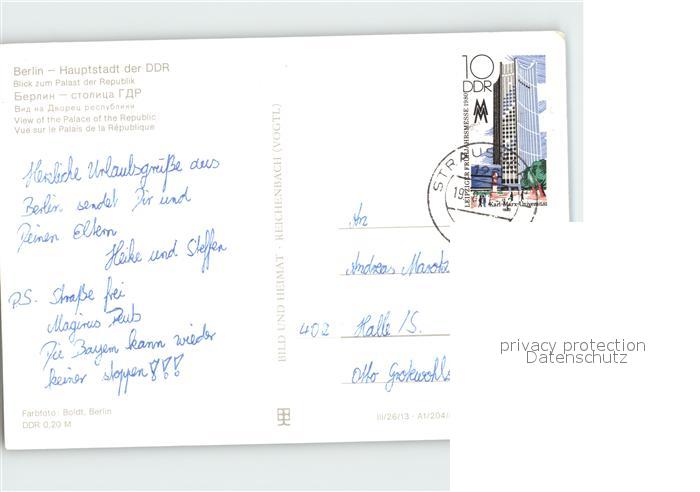 Berlin – Hauptstadt der DDR
Blick zum Palast der Republik
Берлин – столица ГДР
Вид на Дворец республики
View of the Palace of the Republic
Vue sur le Palais de la République
Herzliche Urlaubsgrüße aus
Berlin sendet Dir und
Deinen Eltern
Heike und Steffen
P.S. Straße frei
Magirus
Die Bayern kann wieder
keiner stoppen!!!
Farbfoto: Boldt, Berlin
DDR 0,20 M
BILD UND HEIMAT · REICHENBACH (VOGTL)
III/26/13 · A1/204/
10
DDR
LEIPZIGER FRÜHJAHRSMESSE 1980
MM
Karl-Marx-Universität
STRAUS
An
Andreas
402 Halle/S.
Otto
privacy protection
Datenschutz